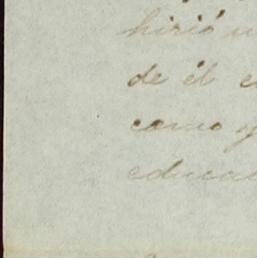 hirió
de él
como
educa